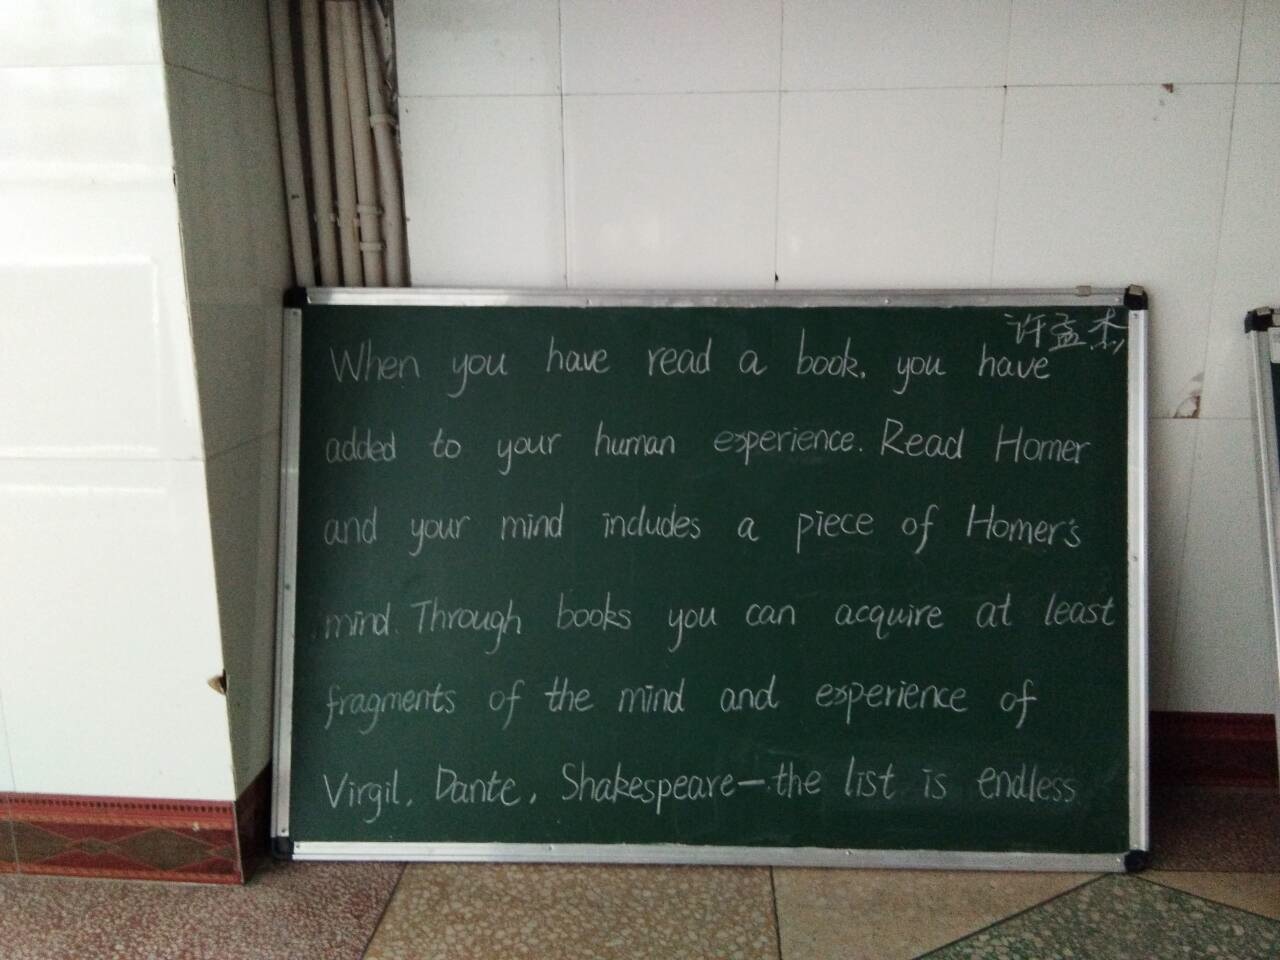 许孟杰
When you have read a book, you have
added to your human experience. Read Homer
and your mind includes a piece of Homer's
mind. Through books you can acquire at least
fragments of the mind and experience of
Virgil, Dante, Shakespeare—the list is endless.